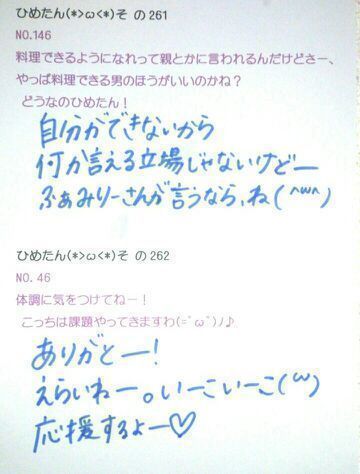 ひめたん(*>ω<*)そ の261
NO.146
料理できるようになれって親とかに言われるんだけどさー、
やっぱ料理できる男のほうがいいのかね?
どうなのひめたん!
自分ができないから
何か言える立場じゃないけどー
ふぁみりーさんが言うなら、ね(^ω^)
ひめたん(*>ω<*)そ の262
NO.46
体調に気をつけてねー!
こっちは課題やってきますわ(=ﾟωﾟ)ﾉ♪
ありがとー!
えらいねー。いーこいーこ(ω)
応援するよー♡